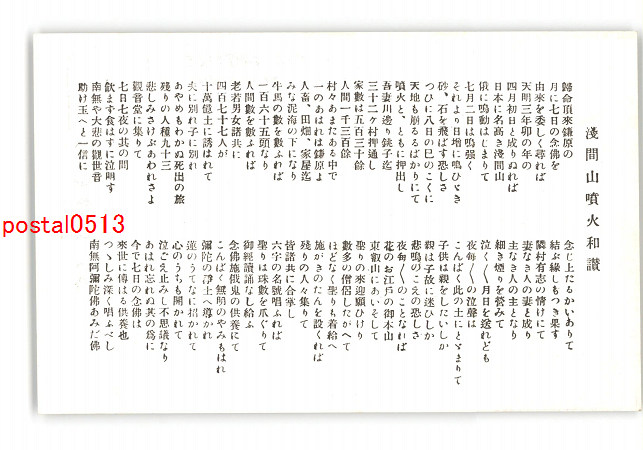 淺間山噴火和讃
歸命頂來鎌原の
月に七日の念佛を
由來を委しく尋れば
天明三年卯の年の
四月初日と成りぬれば
日本に名高き淺間山
俄に鳴動はじまりて
七月二日は鳴强く
それより日增に鳴ひゞき
砂、石を飛ばす恐しさ
つひに八日の巳のこくに
天地も崩るるばかりにて
噴火と、ともに押出し
吾妻川邊り銚子迄
三十二ヶ村押通し
家數は五百三十餘
人間一千三百餘
村々あまたある中で
一のあはれは鎌原よ
人畜、田畑、家屋迄
みな泥海の下になり
牛馬の數を數ふれば
一百六十五頭なり
人間數を數ふれば
老若男女諸共に
四百七十七人が
十萬億土に誘はれて
夫に別れ子に別れ
あやめもわかぬ死出の旅
殘りの人種九十三
悲しみさけぶあわれさよ
觀音堂に集りて
七日七夜の其の間
飮まず食はずに泣明す
南無や大悲の觀世音
助け玉へと一信に
念じ上たるかいありて
結ぶ緣しもつき果ず
隣村有志の情けにて
妻なき人の妻と成り
主なき人の主となり
細き煙りを營みて
泣く〱月日を送れども
夜每〱の泣聲は
こんぱく此の土にとゞまりて
子供は親をしたいしか
親は子故に迷ひしか
悲鳴のこえの恐しさ
夜每〱のことなれば
花のお江戶の御本山
東叡山にあいそして
聖りの來迎願ひけり
數多の僧侶したがへて
ほどなく聖りも着給へ
施がきのだんを設くれば
殘りの人々集りて
皆諸共に合掌し
六字の名號唱ふれば
聖りは珠數を爪ぐりて
御經讀誦なし給ふ
念佛施餓鬼の供養にて
こんぱく無明のやみもはれ
彌陀の淨土へ導かれ
蓮のうてなに招かれて
心のうちも開かれて
泣ごえ止みし不思議なり
あはれ忘れぬ其の爲に
今で七日の念佛は
來世に傳はる供養也
つゝしみ深く唱ふべし
南無阿彌陀佛あみだ佛
postal0513